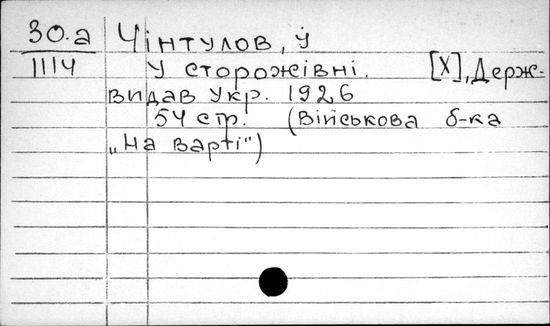 30.a Чінтулов, У
1114 У сторожівні. [X], Держ-
видав Укр. 1926
54 стр. (Військова б-ка
„На варті")